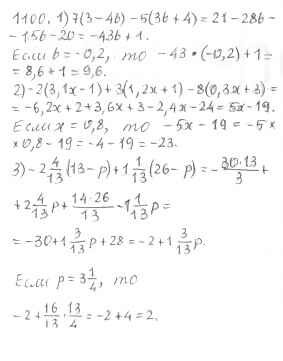 1100. 1) 7(3-4b)-5(3b+4)=21-28b-
-15b-20=-43b+1.
Если b=-0,2, то -43•(-0,2)+1=
=8,6+1=9,6.
2)-2(3,1x-1)+3(1,2x+1)-8(0,3x+3)=
=-6,2x+2+3,6x+3-2,4x-24=5x-19.
Если x=0,8, то -5x-19=-5×
×0,8-19=-4-19=-23.
3)-2 4/13 (13-p)+1 1/13 (26-p)=-30·13/3+
+2 4/13 p+14·26/13-1 1/13 p=
=-30+1 3/13 p+28=-2+1 3/13 p.
Если p=3 1/4, то
-2+16/13·13/4=-2+4=2.